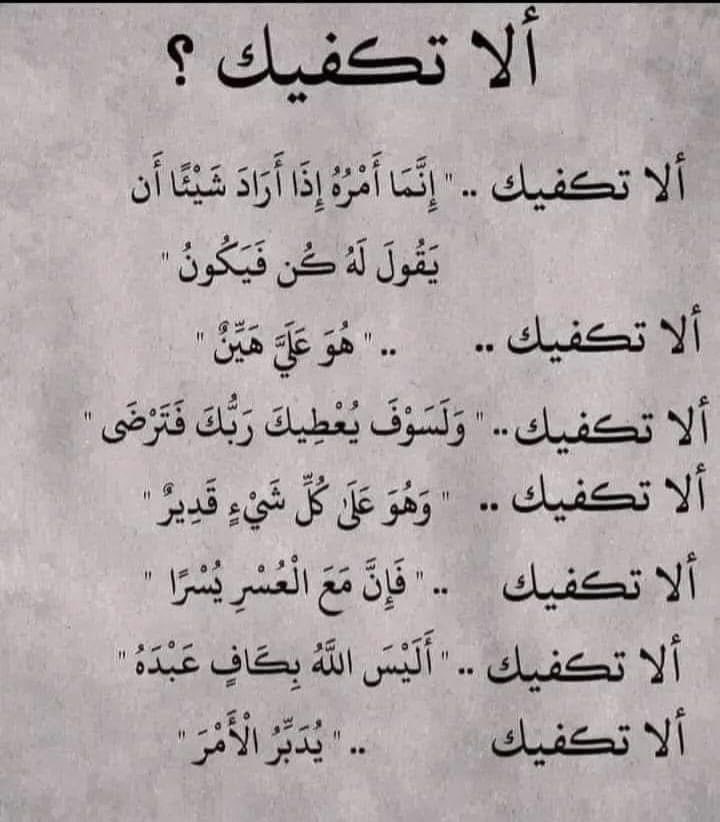 ألا تكفيك ؟
ألا تكفيك .. " إِنَّمَا أَمْرُهُ إِذَا أَرَادَ شَيْئًا أَن
يَقُولَ لَهُ كُن فَيَكُونُ "
ألا تكفيك .. .. " هُوَ عَلَيَّ هَيِّنٌ "
ألا تكفيك .. " وَلَسَوْفَ يُعْطِيكَ رَبُّكَ فَتَرْضَى "
ألا تكفيك .. " وَهُوَ عَلَىٰ كُلِّ شَيْءٍ قَدِيرٌ "
ألا تكفيك .. " فَإِنَّ مَعَ الْعُسْرِ يُسْرًا "
ألا تكفيك .. " أَلَيْسَ اللَّهُ بِكَافٍ عَبْدَهُ "
ألا تكفيك .. " يُدَبِّرُ الْأَمْرَ "